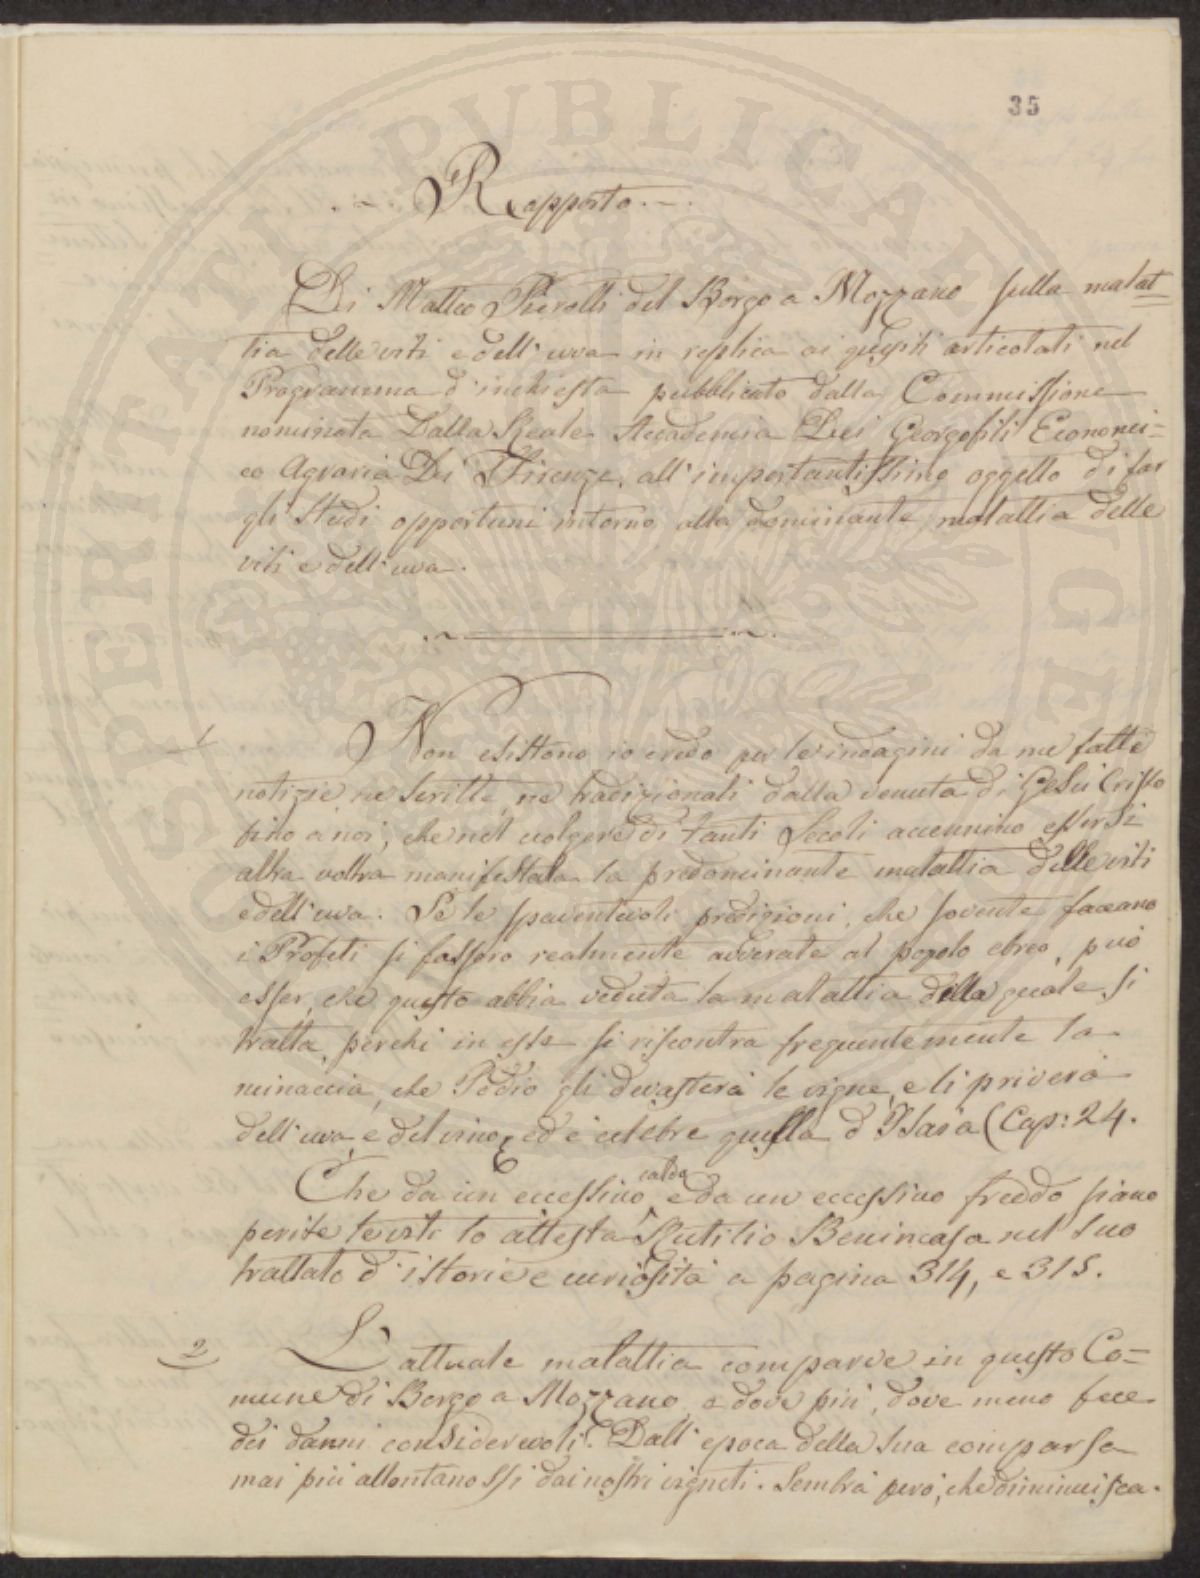 35
Rapporto.
Di Matteo Pierotti del Borgo a Mozzano sulla malat=
tia delle viti e dell'uva in replica ai quesiti articolati nel
Programma d'inchiesta pubblicato dalla Commissione
nominata Dalla Reale Accademia Dei Georgofili Economi=
co Agraria Di Firenze, all'importantissimo oggetto di far
gli Studi opportuni intorno alla dominante malattia delle
viti e dell'uva.
1 Non esistono io credo per le indagini da me fatte
notizie ne scritte, ne tradizionali dalla venuta di Gesù Cristo
fino a noi, che nel volgere di tanti Secoli accennino essersi
altra volta manifestata la predominante malattia delle viti
e dell'uva. Se le spaventevoli predizioni, che sovente faceano
i Profeti si fossero realmente avverate al popolo ebreo, può
esser, che questo abbia veduta la malattia della quale si
tratta, perchè in esse si riscontra frequentemente la
minaccia, che Iddio gli devasterà le vigne, e li priverà
dell'uva, e del vino, ed è celebre quella d'Isaia (Cap: 24.
Che da un eccessivo caldo e da un eccessivo freddo siano
perite le viti lo attesta Rutilio Benincasa nel suo
trattato d'istorie e curiosità a pagina 314, e 315.
2 L'attuale malattia comparve in questo Co=
mune di Borgo a Mozzano, e dove più, dove meno fece
dei danni considerevoli. Dall'epoca della sua comparsa
mai più allontanossi dai nostri vigneti. Sembra però, che diminuisca.
SPERITATI PVBLICAE